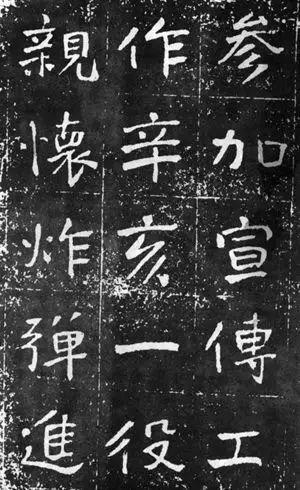 参加宣傳工
作辛亥一役
親懷炸弹進